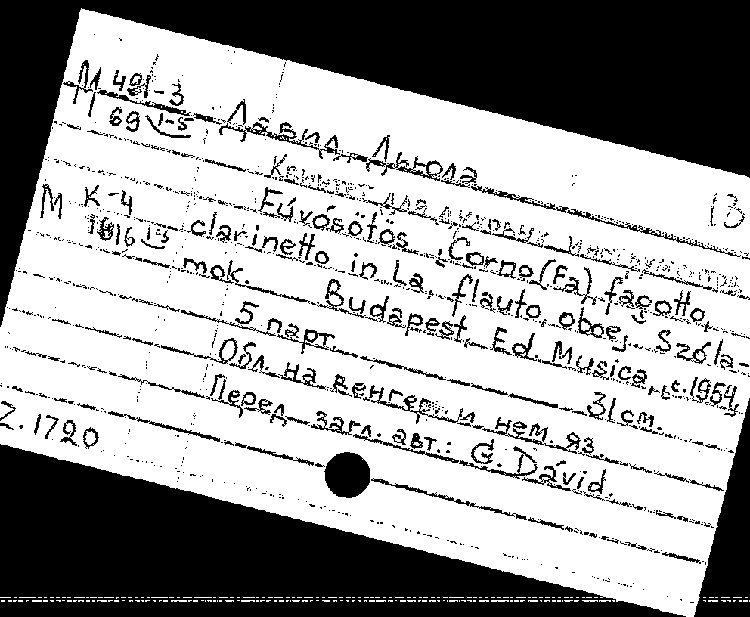 М 491-3
69 1-5
Давид, Дьюла
13
Квинтет для духовых инструментов
М К-4
1816 1-5
Fúvósötös, Corno (Fa), fagotto,
clarinetto in La, flauto, oboe, Szóla-
mok. Budapest, Ed. Musica, c.1954,
5 парт. 31 см.
Обл. на венгер. и нем. яз.
Перед загл. авт.: G. Dávid.
Z.1720